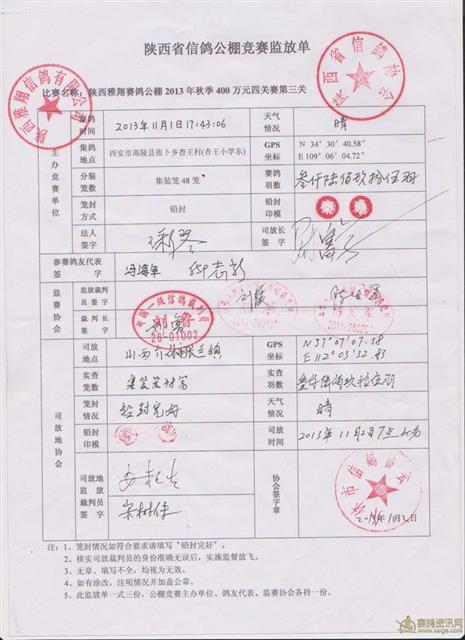 陕西省信鸽公棚竞赛监放单
比赛名称：陕西雅翔赛鸽公棚 2013 年秋季 400 万元四关赛第三关
陕西雅翔信鸽有限公司
陕西省信鸽协会
主办竞赛单位
集鸽时间 2013年11月1日17:43:06 天气情况 晴
集鸽地点 西安市高陵县张卜乡杏王村(杏王小学东) GPS坐标 N 34°30′40.58" E 109°06′04.72"
分装笼数 集装笼 48 笼 赛鸽羽数 叁仟陆佰玖拾伍羽
笼封方式 铅封 铅封印模
法人签字 司放长签字
参赛鸽友代表签字 冯海军
监赛协会
监放裁判员签字
裁判长签字
中国一级信鸽裁判员
26-01002
司放地协会
司放地点 GPS坐标 N37°07′07.58 E112°03′32.83
实查笼数 实查羽数 叁仟陆佰玖拾五羽
笼封情况 铅封完好 天气情况 晴
铅封印模 司放时间 2013年11月2日7点
司放地监放裁判员签字 宋树伟
协会签字章
注：1、笼封情况如符合要求请填写“铅封完好”。
2、核实司放裁判员的身份准确无误后，实施监督放飞。
3、无章、填写不全，均视为无效。
4、如有涂改，注明情况并加盖公章。
5、此监放单一式三份，公棚竞赛主办单位、鸽友代表、监赛协会各持一份。
赛鸽资讯网
www.saige.com